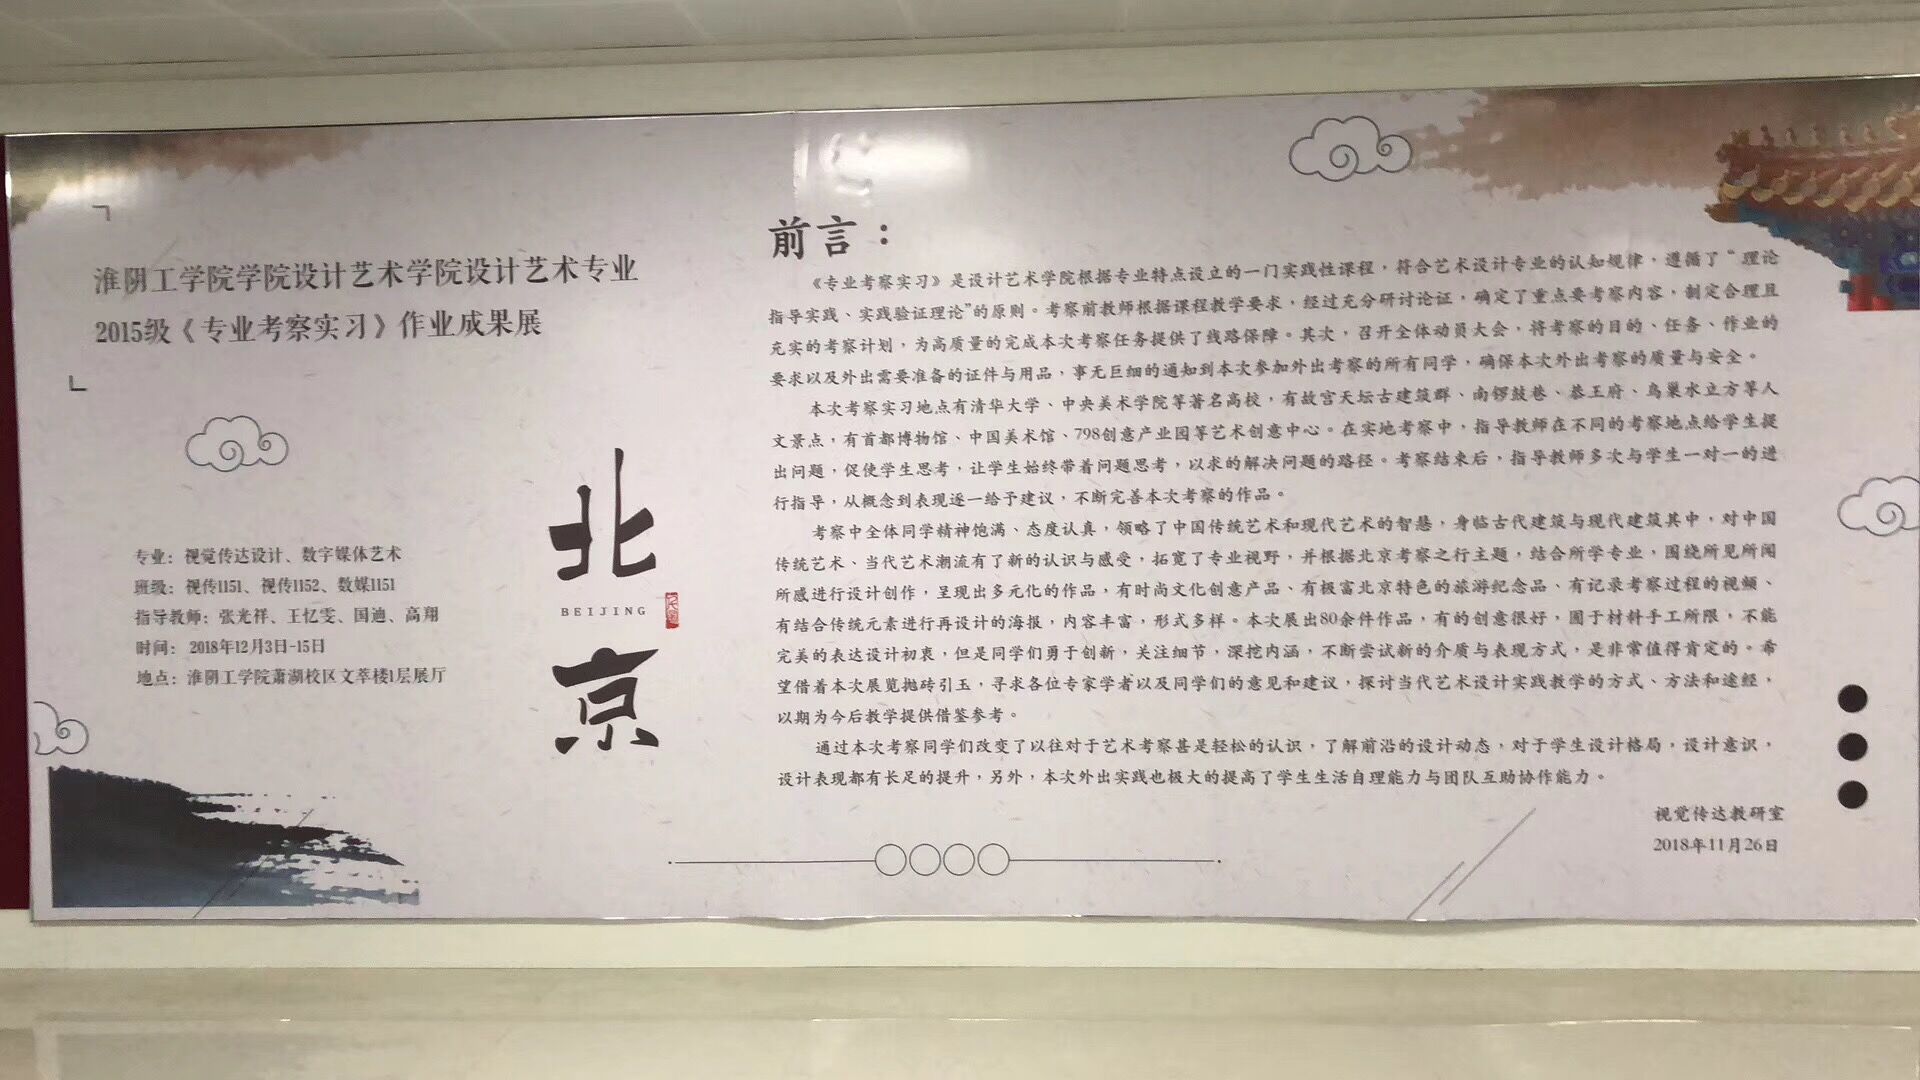 淮阴工学院学院设计艺术学院设计艺术专业
2015级《专业考察实习》作业成果展
专业：视觉传达设计、数字媒体艺术
班级：视传1151、视传1152、数媒1151
指导教师：张光祥、王忆雯、国迪、高翔
时间： 2018年12月3日-15日
地点：淮阴工学院萧湖校区文萃楼1层展厅
北
BEIJING
京
前言：
《专业考察实习》是设计艺术学院根据专业特点设立的一门实践性课程，符合艺术设计专业的认知规律，遵循了“理论
指导实践、实践验证理论”的原则。考察前教师根据课程教学要求，经过充分研讨论证，确定了重点要考察内容，制定合理且
充实的考察计划，为高质量的完成本次考察任务提供了线路保障。其次，召开全体动员大会，将考察的目的、任务、作业的
要求以及外出需要准备的证件与用品，事无巨细的通知到本次参加外出考察的所有同学，确保本次外出考察的质量与安全。
本次考察实习地点有清华大学、中央美术学院等著名高校，有故宫天坛古建筑群、南锣鼓巷、恭王府、鸟巢水立方等人
文景点，有首都博物馆、中国美术馆、798创意产业园等艺术创意中心。在实地考察中，指导教师在不同的考察地点给学生提
出问题，促使学生思考，让学生始终带着问题思考，以求的解决问题的路径。考察结束后，指导教师多次与学生一对一的进
行指导，从概念到表现逐一给予建议，不断完善本次考察的作品。
考察中全体同学精神饱满、态度认真，领略了中国传统艺术和现代艺术的智慧，身临古代建筑与现代建筑其中，对中国
传统艺术、当代艺术潮流有了新的认识与感受，拓宽了专业视野，并根据北京考察之行主题，结合所学专业，围绕所见所闻
所感进行设计创作，呈现出多元化的作品，有时尚文化创意产品、有极富北京特色的旅游纪念品、有记录考察过程的视频、
有结合传统元素进行再设计的海报，内容丰富，形式多样。本次展出80余件作品，有的创意很好，囿于材料手工所限，不能
完美的表达设计初衷，但是同学们勇于创新，关注细节，深挖内涵，不断尝试新的介质与表现方式，是非常值得肯定的。希
望借着本次展览抛砖引玉，寻求各位专家学者以及同学们的意见和建议，探讨当代艺术设计实践教学的方式、方法和途经，
以期为今后教学提供借鉴参考。
通过本次考察同学们改变了以往对于艺术考察甚是轻松的认识，了解前沿的设计动态，对于学生设计格局，设计意识，
设计表现都有长足的提升，另外，本次外出实践也极大的提高了学生生活自理能力与团队互助协作能力。
视觉传达教研室
2018年11月26日